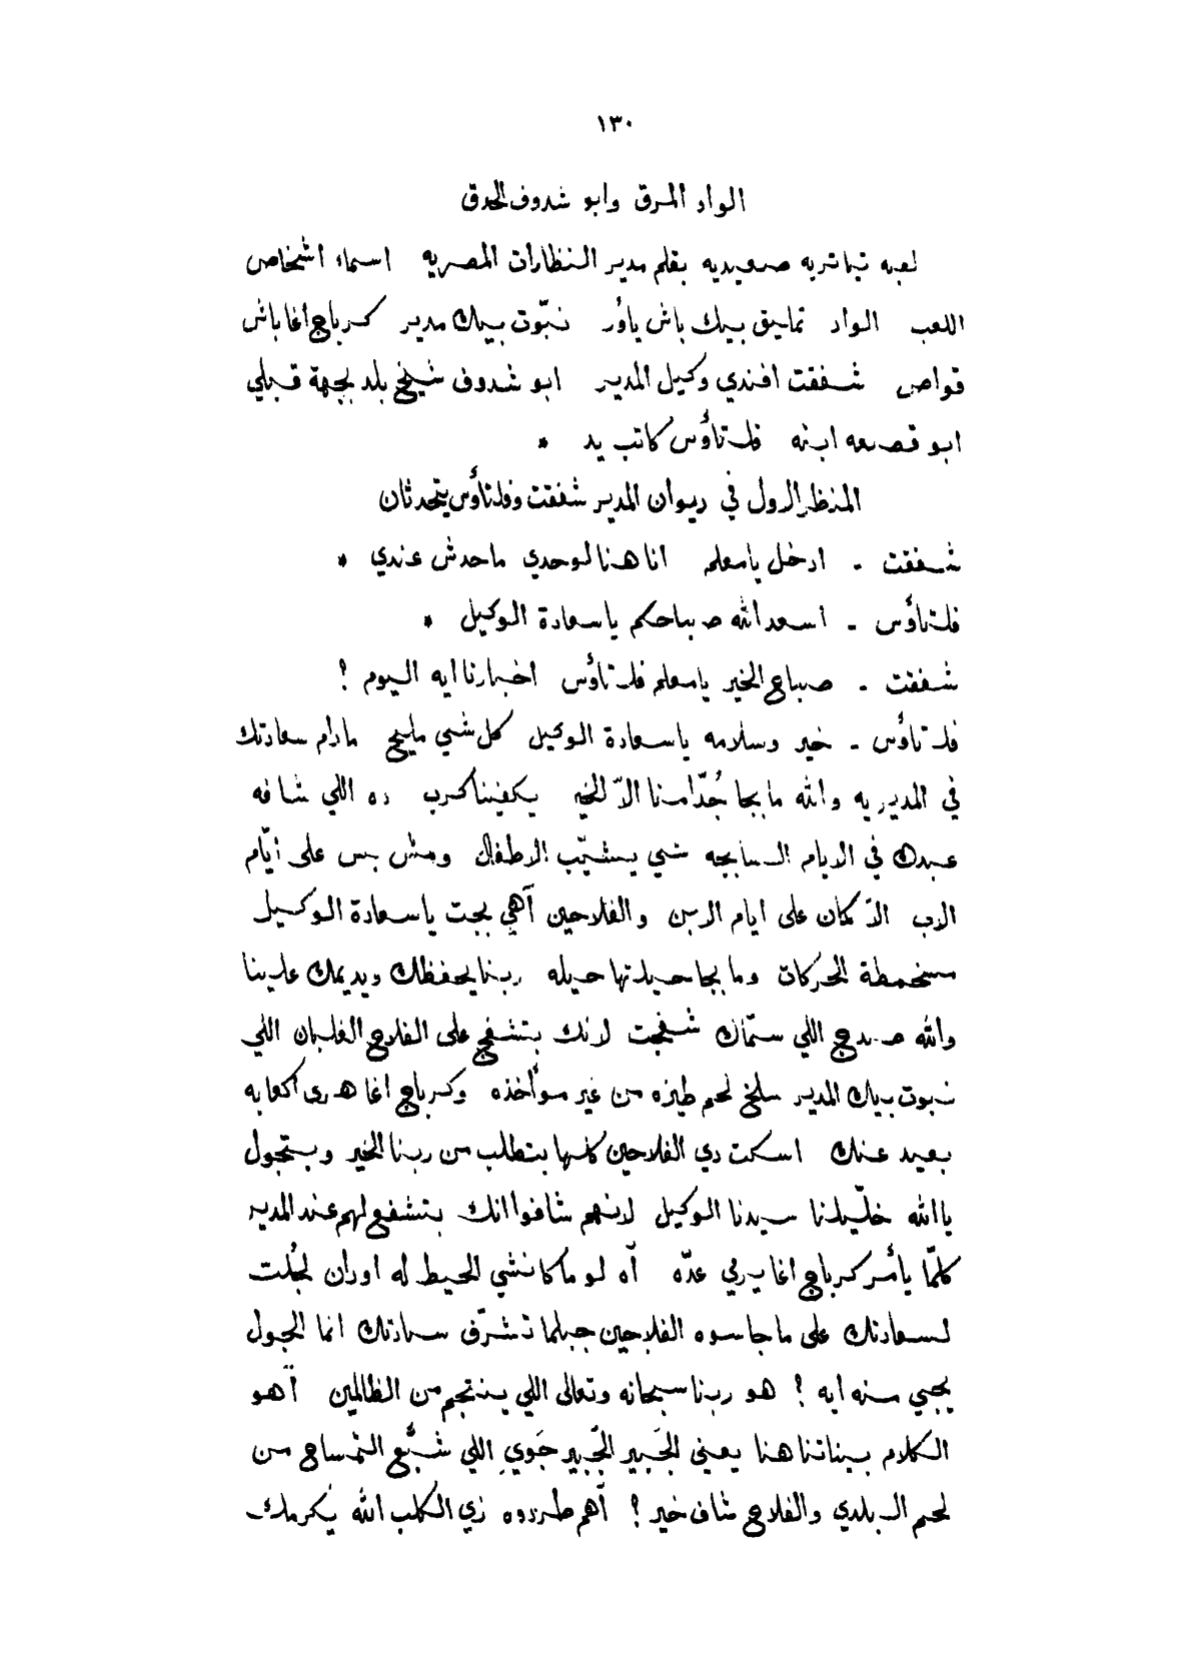 ١٣٠
الواد المرق وابو شدوف الحدق
لعبه تياتريه صعيديه بقلم مدير النظارات المصريه اسماء اشخاص
اللعب الواد تمليق بيك باش ياور نبّوت بيك مدير كرباج اغا باش
قواص شفقت افندي وكيل المدير ابو شدوف شيخ بلد بجهة قبلي
ابو قصعه ابنه فلتاؤس كاتب يد *
المنظر الاول في ديوان المدير شفقت وفلتاؤس يتحدثان
شفقت - ادخل يا معلم انا هنا لوحدي ماحدش عندي *
فلتاؤس - اسعد الله صباحكم يا سعادة الوكيل *
شفقت - صباح الخير يا معلم فلتاؤس اخبارنا ايه اليوم ؟
فلتاؤس - خير وسلامه يا سعادة الوكيل كل شي مليح مادام سعادتك
في المديريه والله ما بجا جُدّامنا الاّ الخير يكفينا كرب ده اللي شافه
عبدك في الايام السابجه شي يشيّب الاطفال ومش بس على ايّام
الاب الاّ كمان على ايام الابن والفلاحين آهي بجت يا سعادة الوكيل
مسخمطة الحركات وما بجا حيلتها حيله ربنا يحفظك ويديمك علينا
والله صدج اللي سمّاك شفجت لانك بتشفج على الفلاح الغلبان اللي
نبوت بيك المدير سلخ لحم طيزه من غير مؤاخذه وكرباج اغا هرى اكعابه
بعيد عنك اسكت دي الفلاحين كلها بتطلب من ربنا الخير وبتجول
يا الله خلّيلنا سيدنا الوكيل لانهم شافوا انك بتشفع لهم عند المدير
كلمّا يأمر كرباج اغا يرمي عدّه آه لو ما كانشي الحيط له اودان لجُلت
لسعادتك على ما جاسوه الفلاحين جبلما تشرّف سعادتك انما الجول
يجيي منه ايه ؟ هو ربنا سبحانه وتعالى اللي ينتجم من الظالمين آهو
الكلام بيناتنا هنا يعني الجَبير الجّبير جَوي اللي شبّع التمساح من
لحم البلدي والفلاح شاف خير ؟ آهم طردوه زي الكلب الله يكرمك